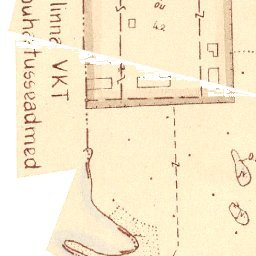 linna VKT
puhastusseadmed
42